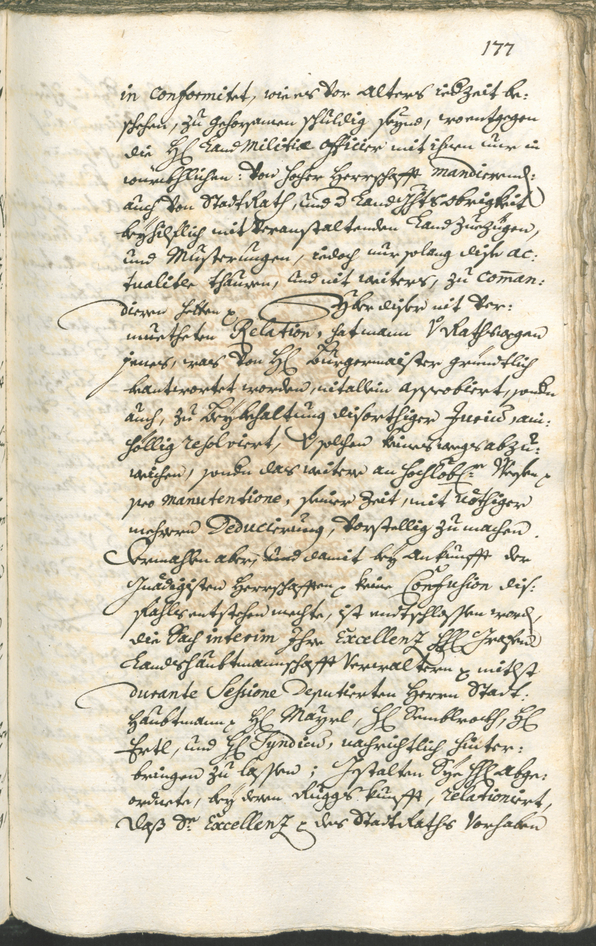 177
in conformitet, wie es vor alters iedZeit be:
schehen, zu gehorsamen schuldig seyend, wo entgegen
die H: Land Militiæ officier mit ihnen nur in
würckhlichen: von hocher Herrschafft mandierend:
auch von StadtRath, und Obrigkeit
beyhilflich mit veranstaltenden Land Zuezügen,
und Musterungen, iedoch nur solang dise ac:
tualitet thauren, und nit weiters, zu coman:
dieren hetten. Yber diser nit ver:
muetheten Relation, hat mann Rathswegen
jenes, was von H: Burgermaister gründtlich
beantwortet worden, nit allein approbiert, sondern
auch, zu Beybehaltung diserthiger Jurium, ain:
hellig resolviert, solchen keineswegs abzu:
weichen, sonder das weitere an hochlobl: Wesen
pro manutentione, seiner Zeit, mit nöthiger
mehrern Deducierung, vorstellig zu machen.
Dermahlen aber, und damit bey Ankunfft der
Gnädigisten Herrschafften keine Confusion dis:
fahls entstehen mechte, ist entschlossen word,
die Sach interim Ihro Excellenz H: Grafen
Landshaubtmannschafft Verwaltern mitlst
durante Sessione Deputierten Herrn Stadt:
haubtmann, H: Mayrl, H: Sembleroth, H:
Ertl, und H: Syndicus, nachrichtlich hinter:
bringen zu lassen; Gestalten Sye H: Abge:
ordnete, bey deren Ruggkhunfft, relationiert,
daß Sr Excellenz des StadtRaths Vorhaben